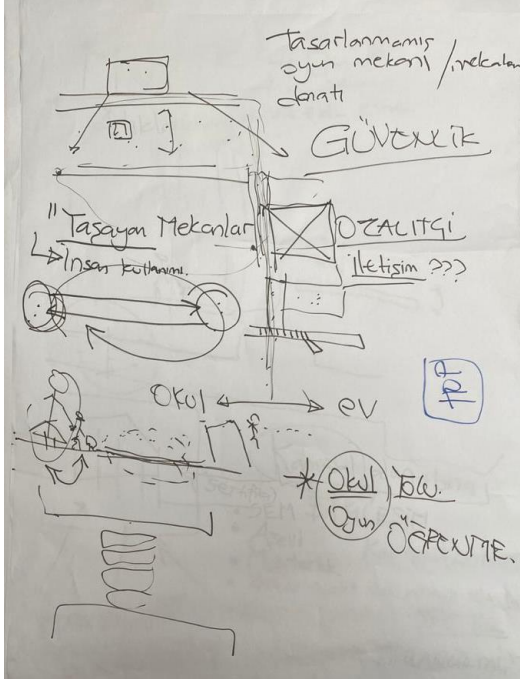 Tasarlanmamış
oyun mekanı / mekanlar
donatı
GÜVENLİK
"Taşayan Mekanlar
İnsan kullanımı.
OZALITÇI
İletişim ???
Okul ev
* Okul Yolu.
Oyun ÖĞRENME.